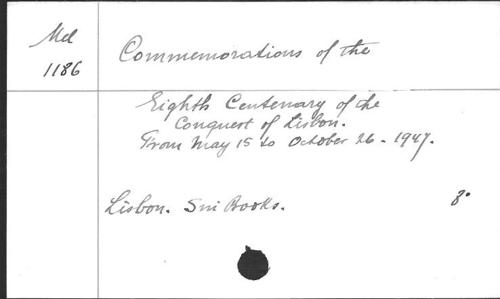 Med
1186
Commemorations of the
Eighth Centenary of the
Conquest of Lisbon.
From May 15 to October 26 - 1947.
Lisbon. Books. 8°